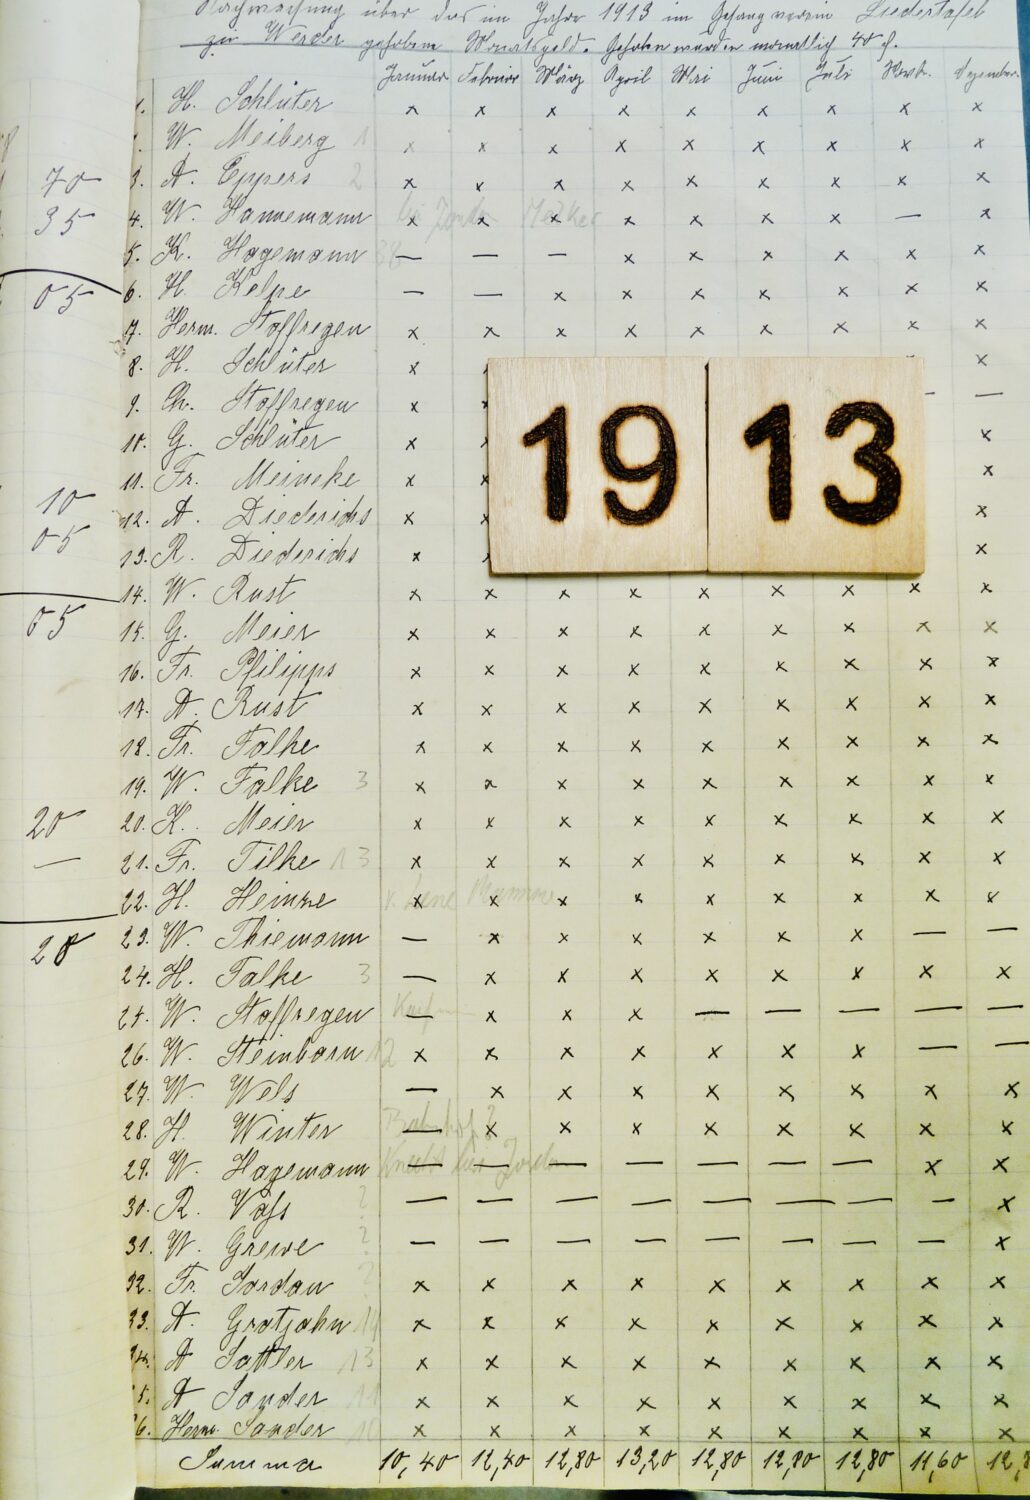 Nachweisung über das im Jahre 1913 im Gesangverein Liedertafel
zu Werder gehobene Monatsgeld. Gehoben wurden monatlich 40 ₰.
Januar Februar März April Mai Juni Juli Novb. Dezember
1. H. Schlüter x x x x x x x x x
W. Meiberg 1 x x x x x x x x x
3. A. Eppers 2 x x x x x x x x x
4. W. Hannemann x x x x x x x — x
5. K. Hagemann — — — x x x x x x
6. H. Kelpe — — x x x x x x x
7. Herm. Stoffregen x x x x x x x x x
8. H. Schlüter x x
9. Ch. Stoffregen x — —
10. G. Schlüter x x
11. Fr. Meineke x x
12. A. Diederichs x x
13. R. Diederichs x x
14. W. Rust x x x x x x x x x
15. G. Meier x x x x x x x x x
16. Fr. Philipps x x x x x x x x x
17. A. Rust x x x x x x x x x
18. Fr. Falke x x x x x x x x x
19. W. Falke 3 x x x x x x x x x
20. K. Meier x x x x x x x x x
21. Fr. Tilke 13 x x x x x x x x x
22. H. Heinze x x x x x x x x x
23. W. Thiemann — x x x x x x — —
24. H. Falke 3 — x x x x x x x x
25. W. Stoffregen — x x x — — — — —
26. W. Steinborn 12 x x x x x x x — —
27. W. Wels — x x x x x x x x
28. H. Winter — x x x x x x x x
29. W. Hagemann — — — — — — — x x
30. R. Voß ? — — — — — — — — x
31. W. Grewe ? — — — — — — — — x
32. Fr. Jordan ? x x x x x x x x x
33. A. Grotjahn 14 x x x x x x x x x
34. A. Sattler 13 x x x x x x x x x
35. A. Sander 11 x x x x x x x x x
36. Herm. Sander 10 x x x x x x x x x
Summa 10,40 12,40 12,80 13,20 12,80 12,80 12,80 11,60
70
35
05
10
05
05
20
—
20
19 13